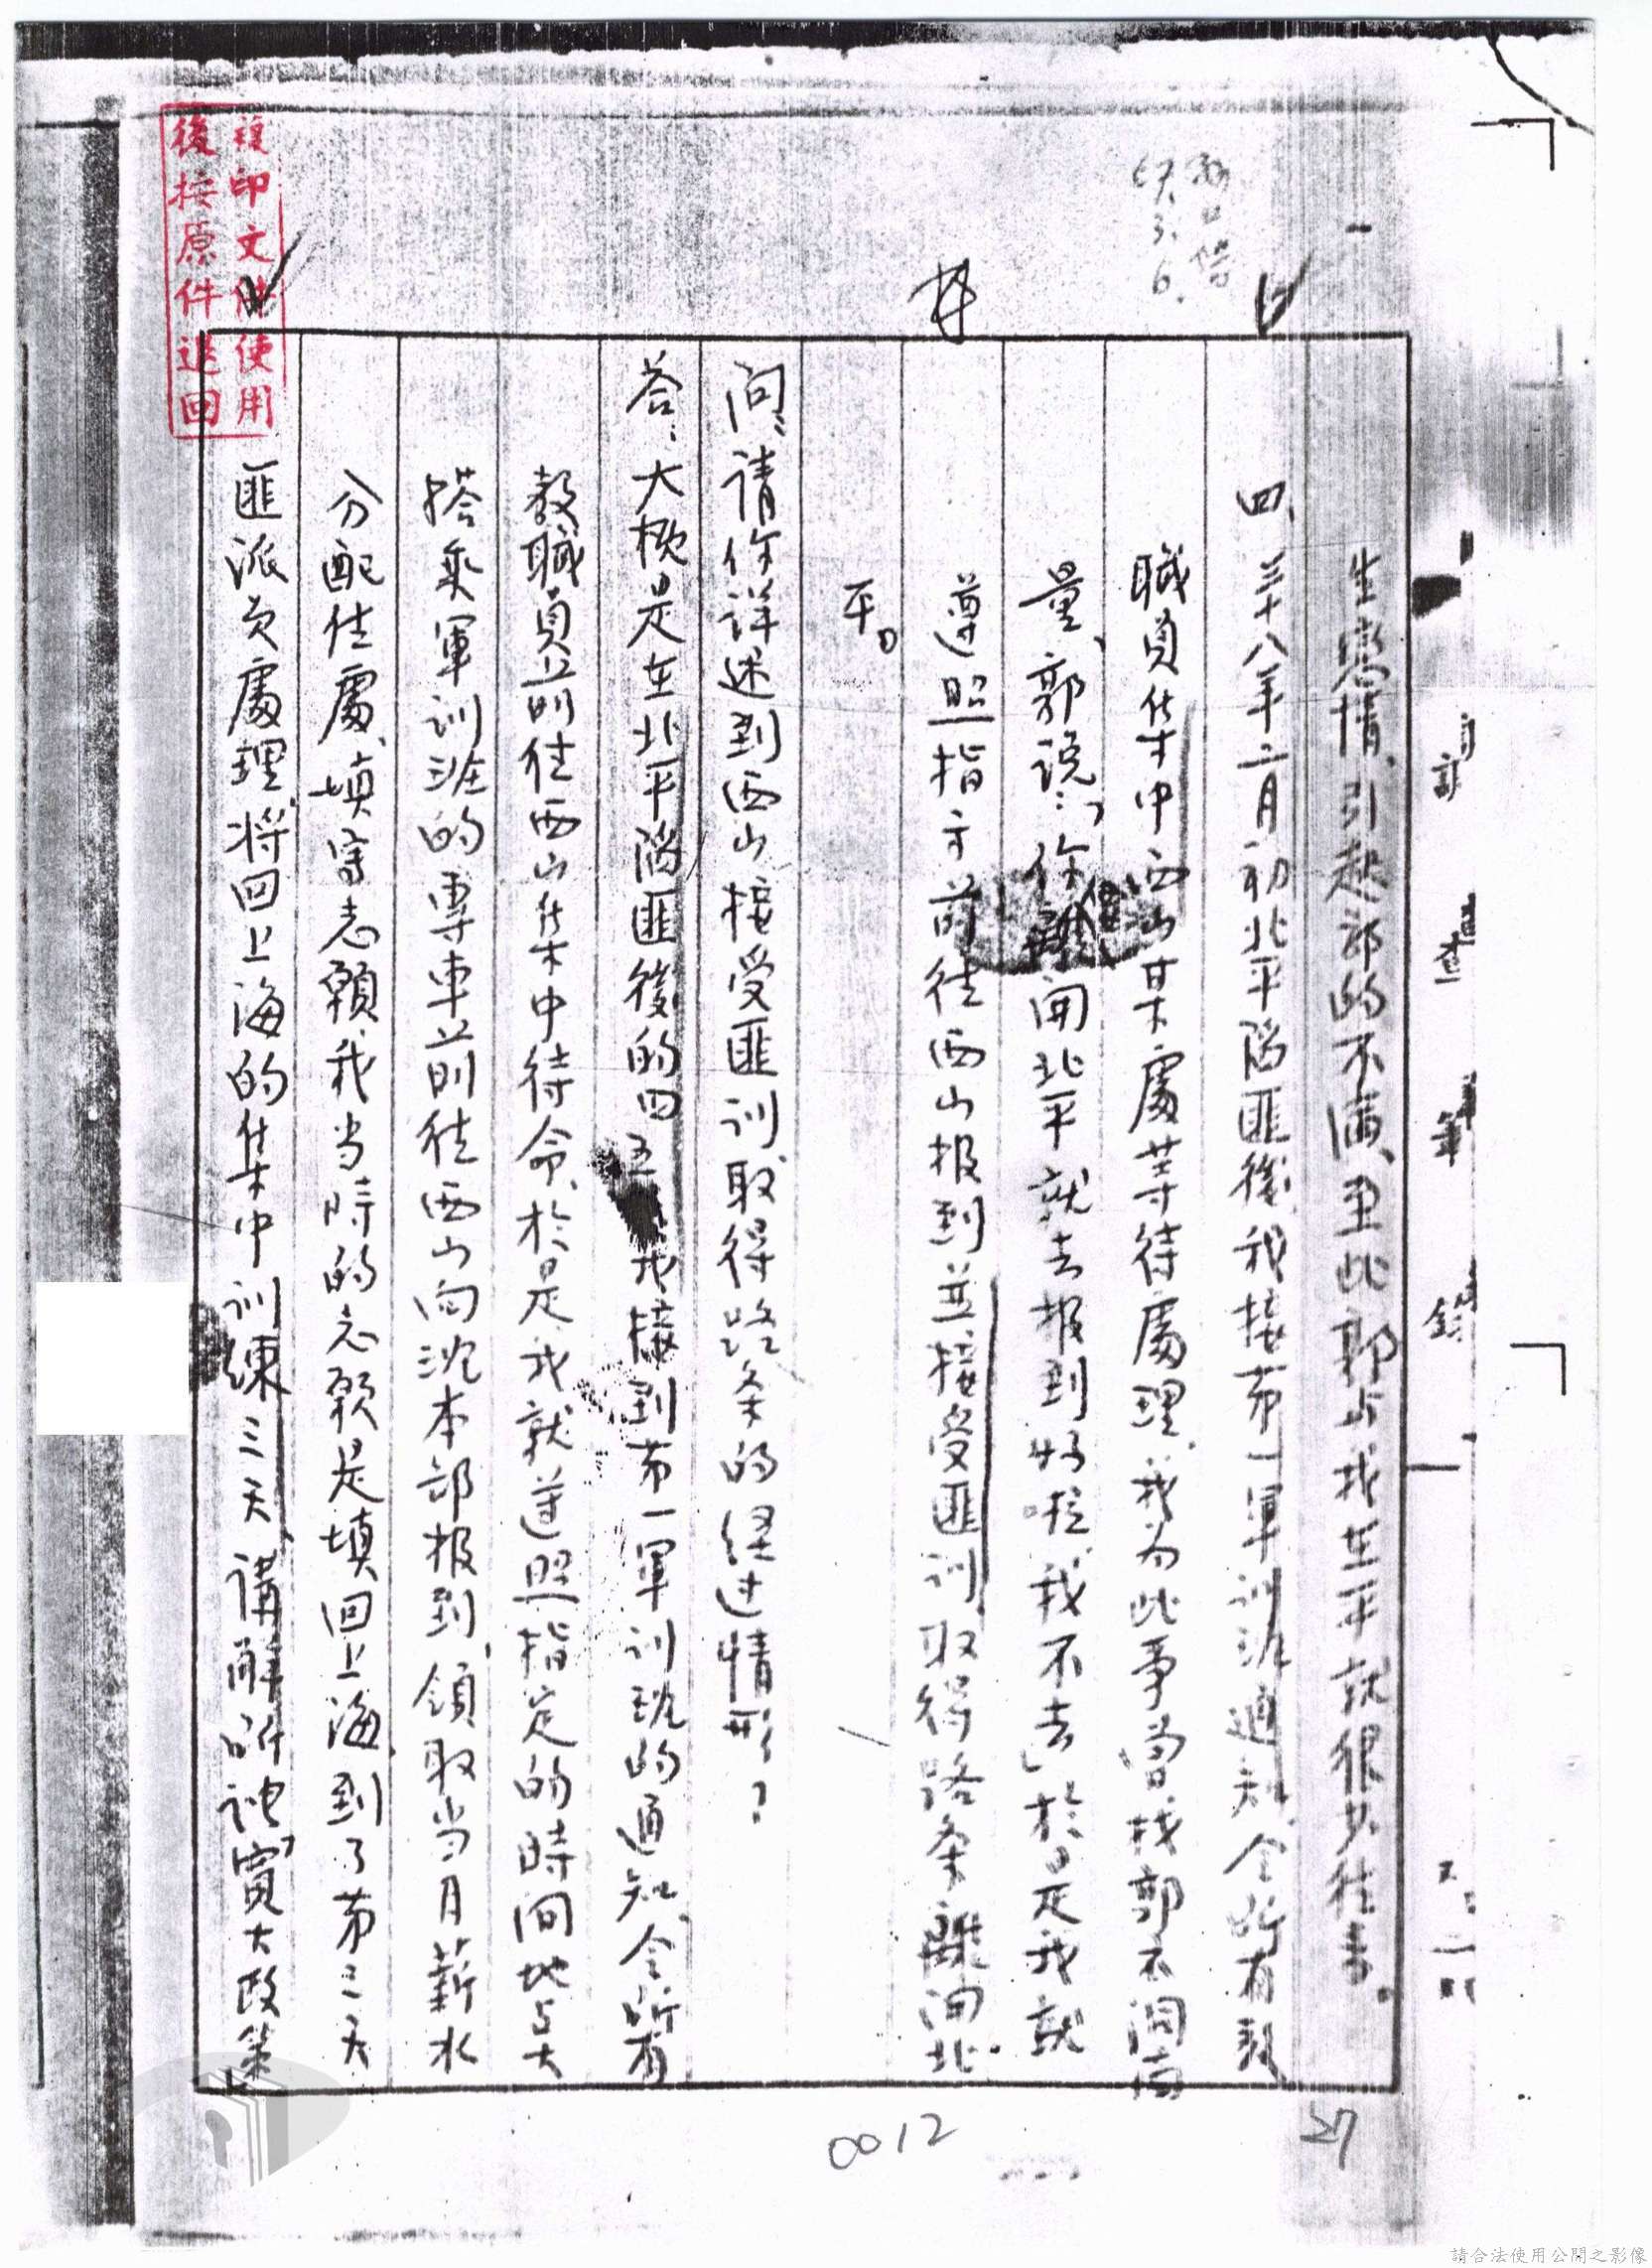 複印文件使用
後按原件退回
調查筆錄
生戀情、引起郭的不滿、至此郭与我在平就很少往來。
四、三十八年二月初北平陷匪後、我接第一軍訓班通知、令所有教
職員集中西山某處等待處理、我为此事曾找郭不同商
量、郭说：「你離開北平就去报到好啦、我不去」於是我就
遵照指示前往西山报到並接受匪训、取得路条離開北
平。
问：请你详述到西山接受匪训取得路条的經过情形？
答：大概是在北平陷匪後的四五 接到第一軍训班的通知、令所有
教職員立前往西山集中待命、於是我就遵照指定的時间地点
搭乘軍训班的專車前往西山向沈本部报到、領取当月薪水
分配住處、填寫志願、我当時的志願是填回上海、到了第三天
匪派員處理、将回上海的集中训練三天、講解所謂寬大政策
0012
27
請合法使用公開之影像